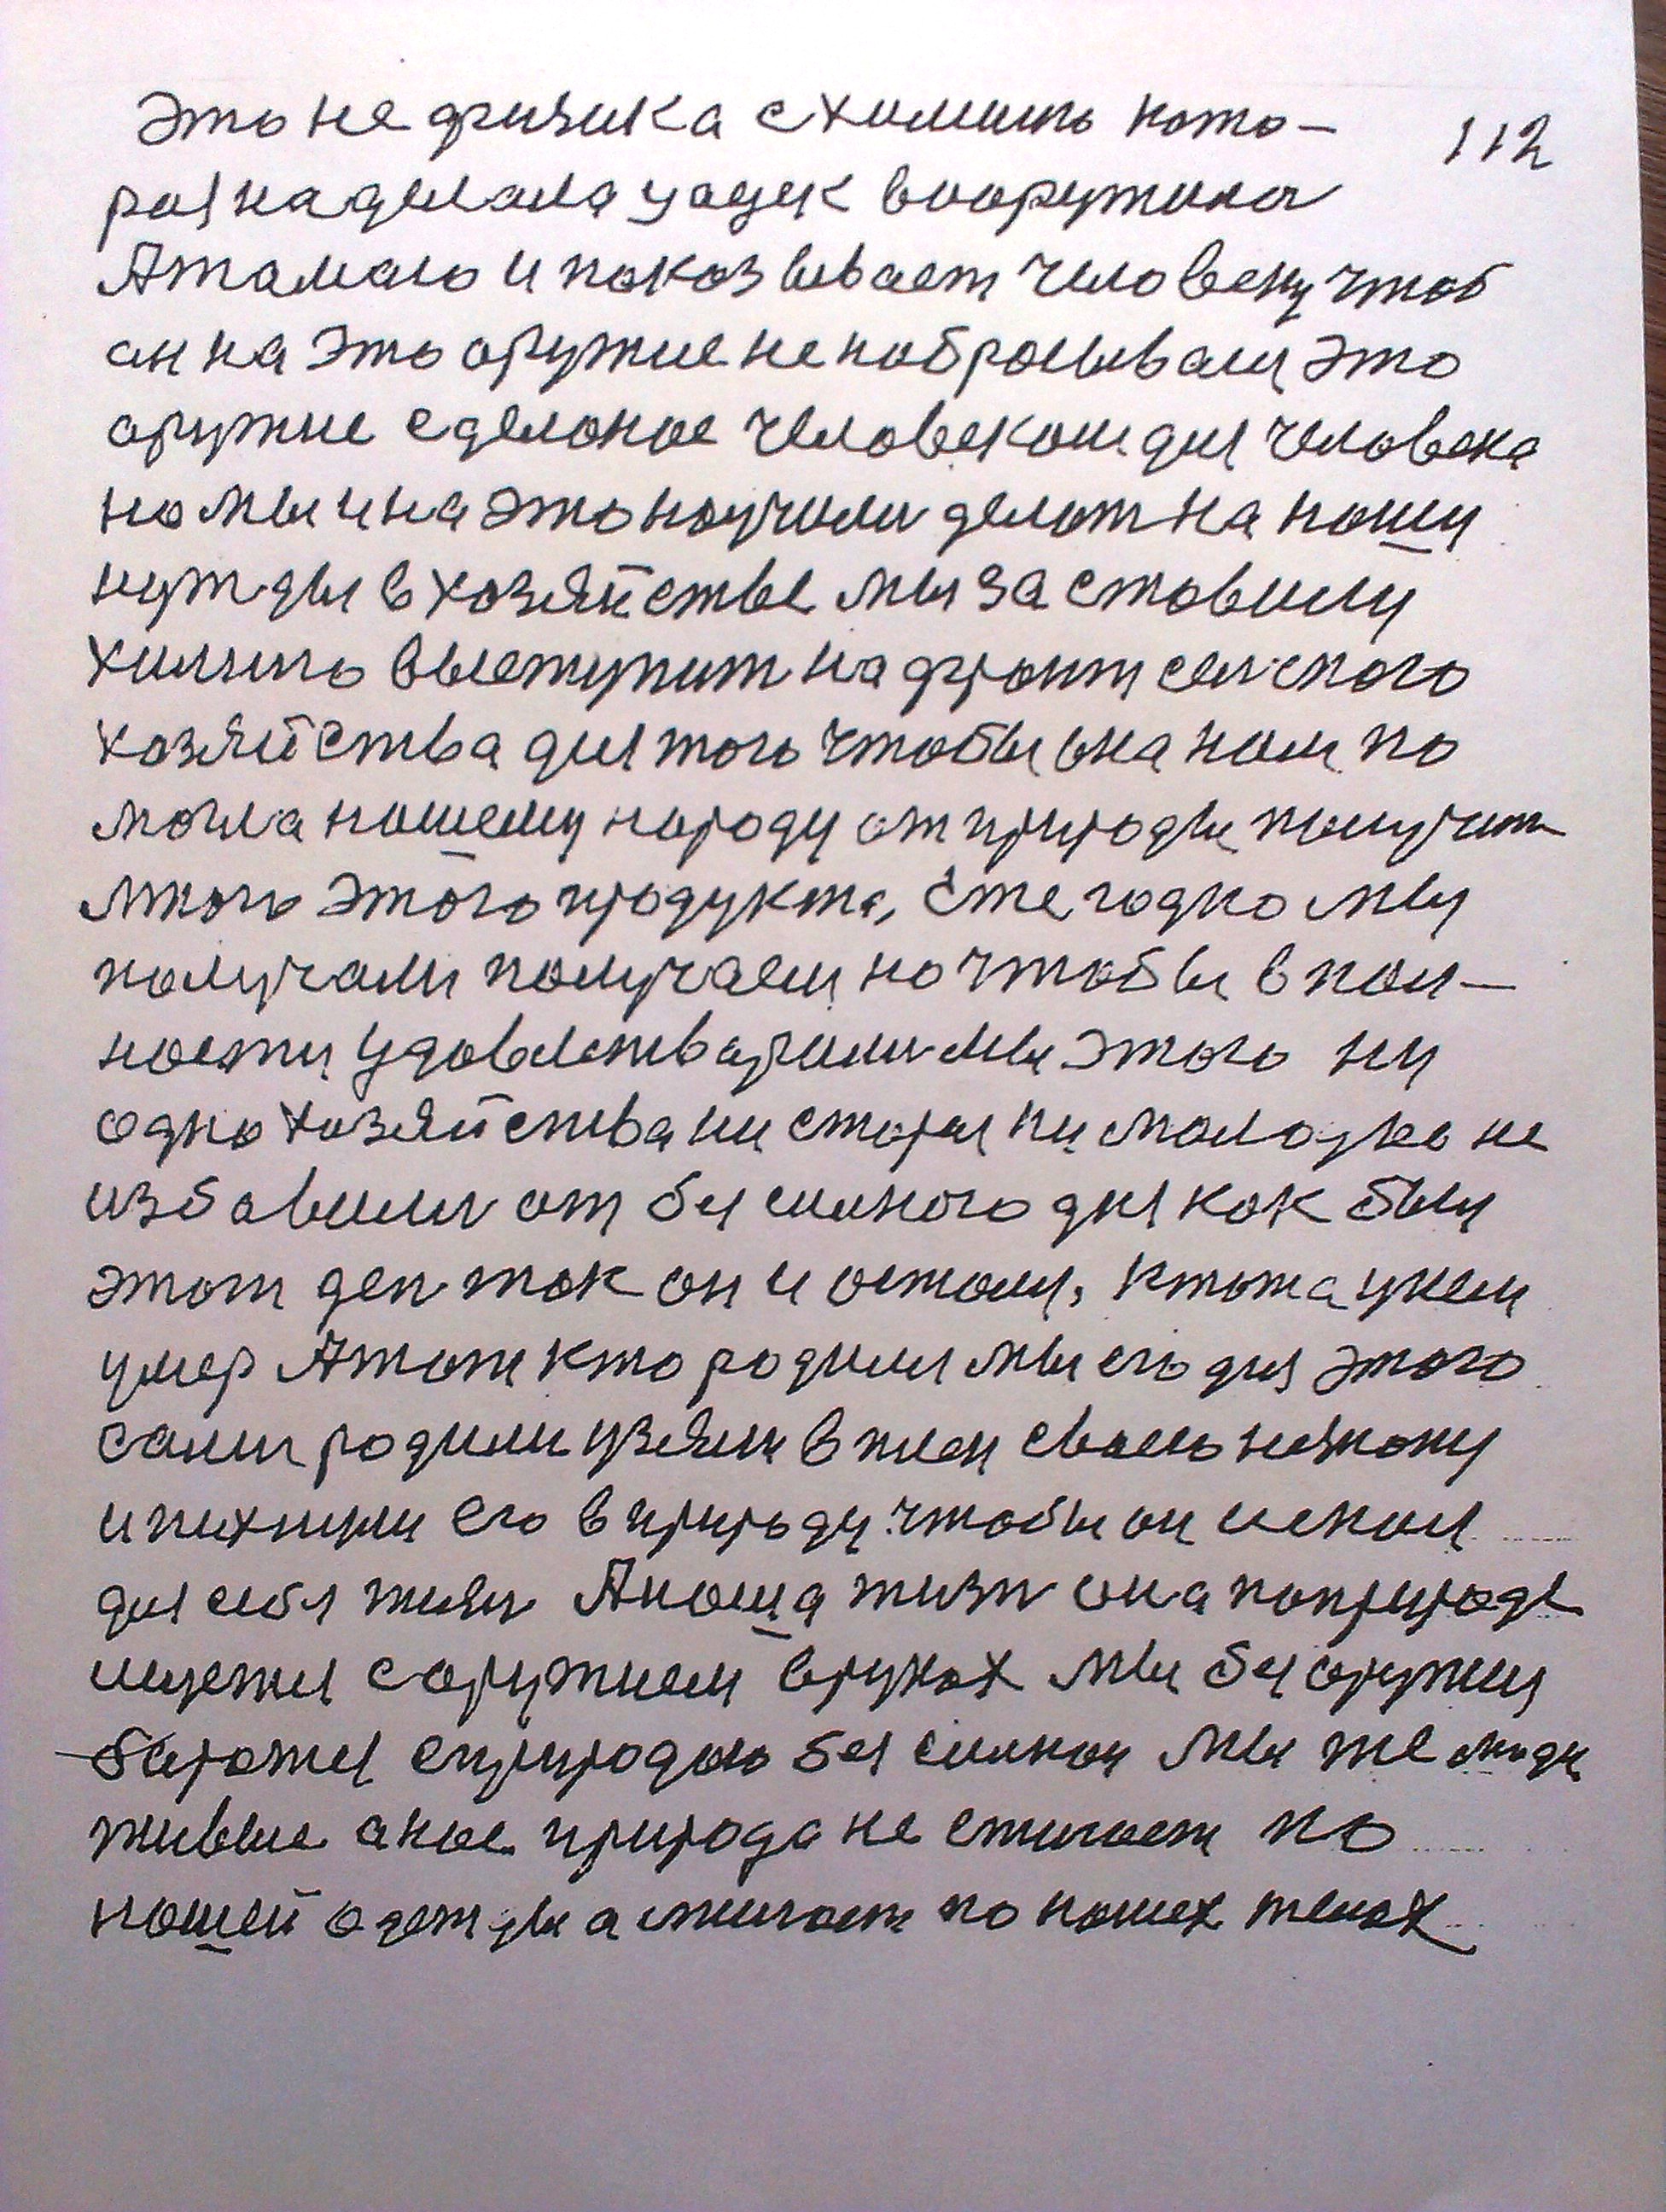 Это не физика с химиею кото- 112
рая наделала удек вооружила
Атамаю и показывает человеку чтоб
ан на это оружие не набросывалц это
оружие сделоное человеком для человека
но мы и на это научили делат на нашы
нужды в хозяйстве мы заставили
химию выступит на фронт селского
хозяйства для того чтобы она нам по
могла нашему народу от природы получит
много этого продукта, Ежегодно мы
получали получаем но чтобы в пол-
ности удовлетварили мы этого ни
одно хозяйства ни старая ни молодую не
избавили от бессилного дня как был
этот ден так он и остался, кто жа
умер А тот кто родился мы его для этого
сами родили узяли в тиски
и пихнули его в природу чтобы он искал
для себя жизн А наша жизн она по природе
с оружием в руках мы без оружия
с природаю безсилнои мы же люди
живые а нас природа не стигает по
нашей одежды а стигает по нашех телах